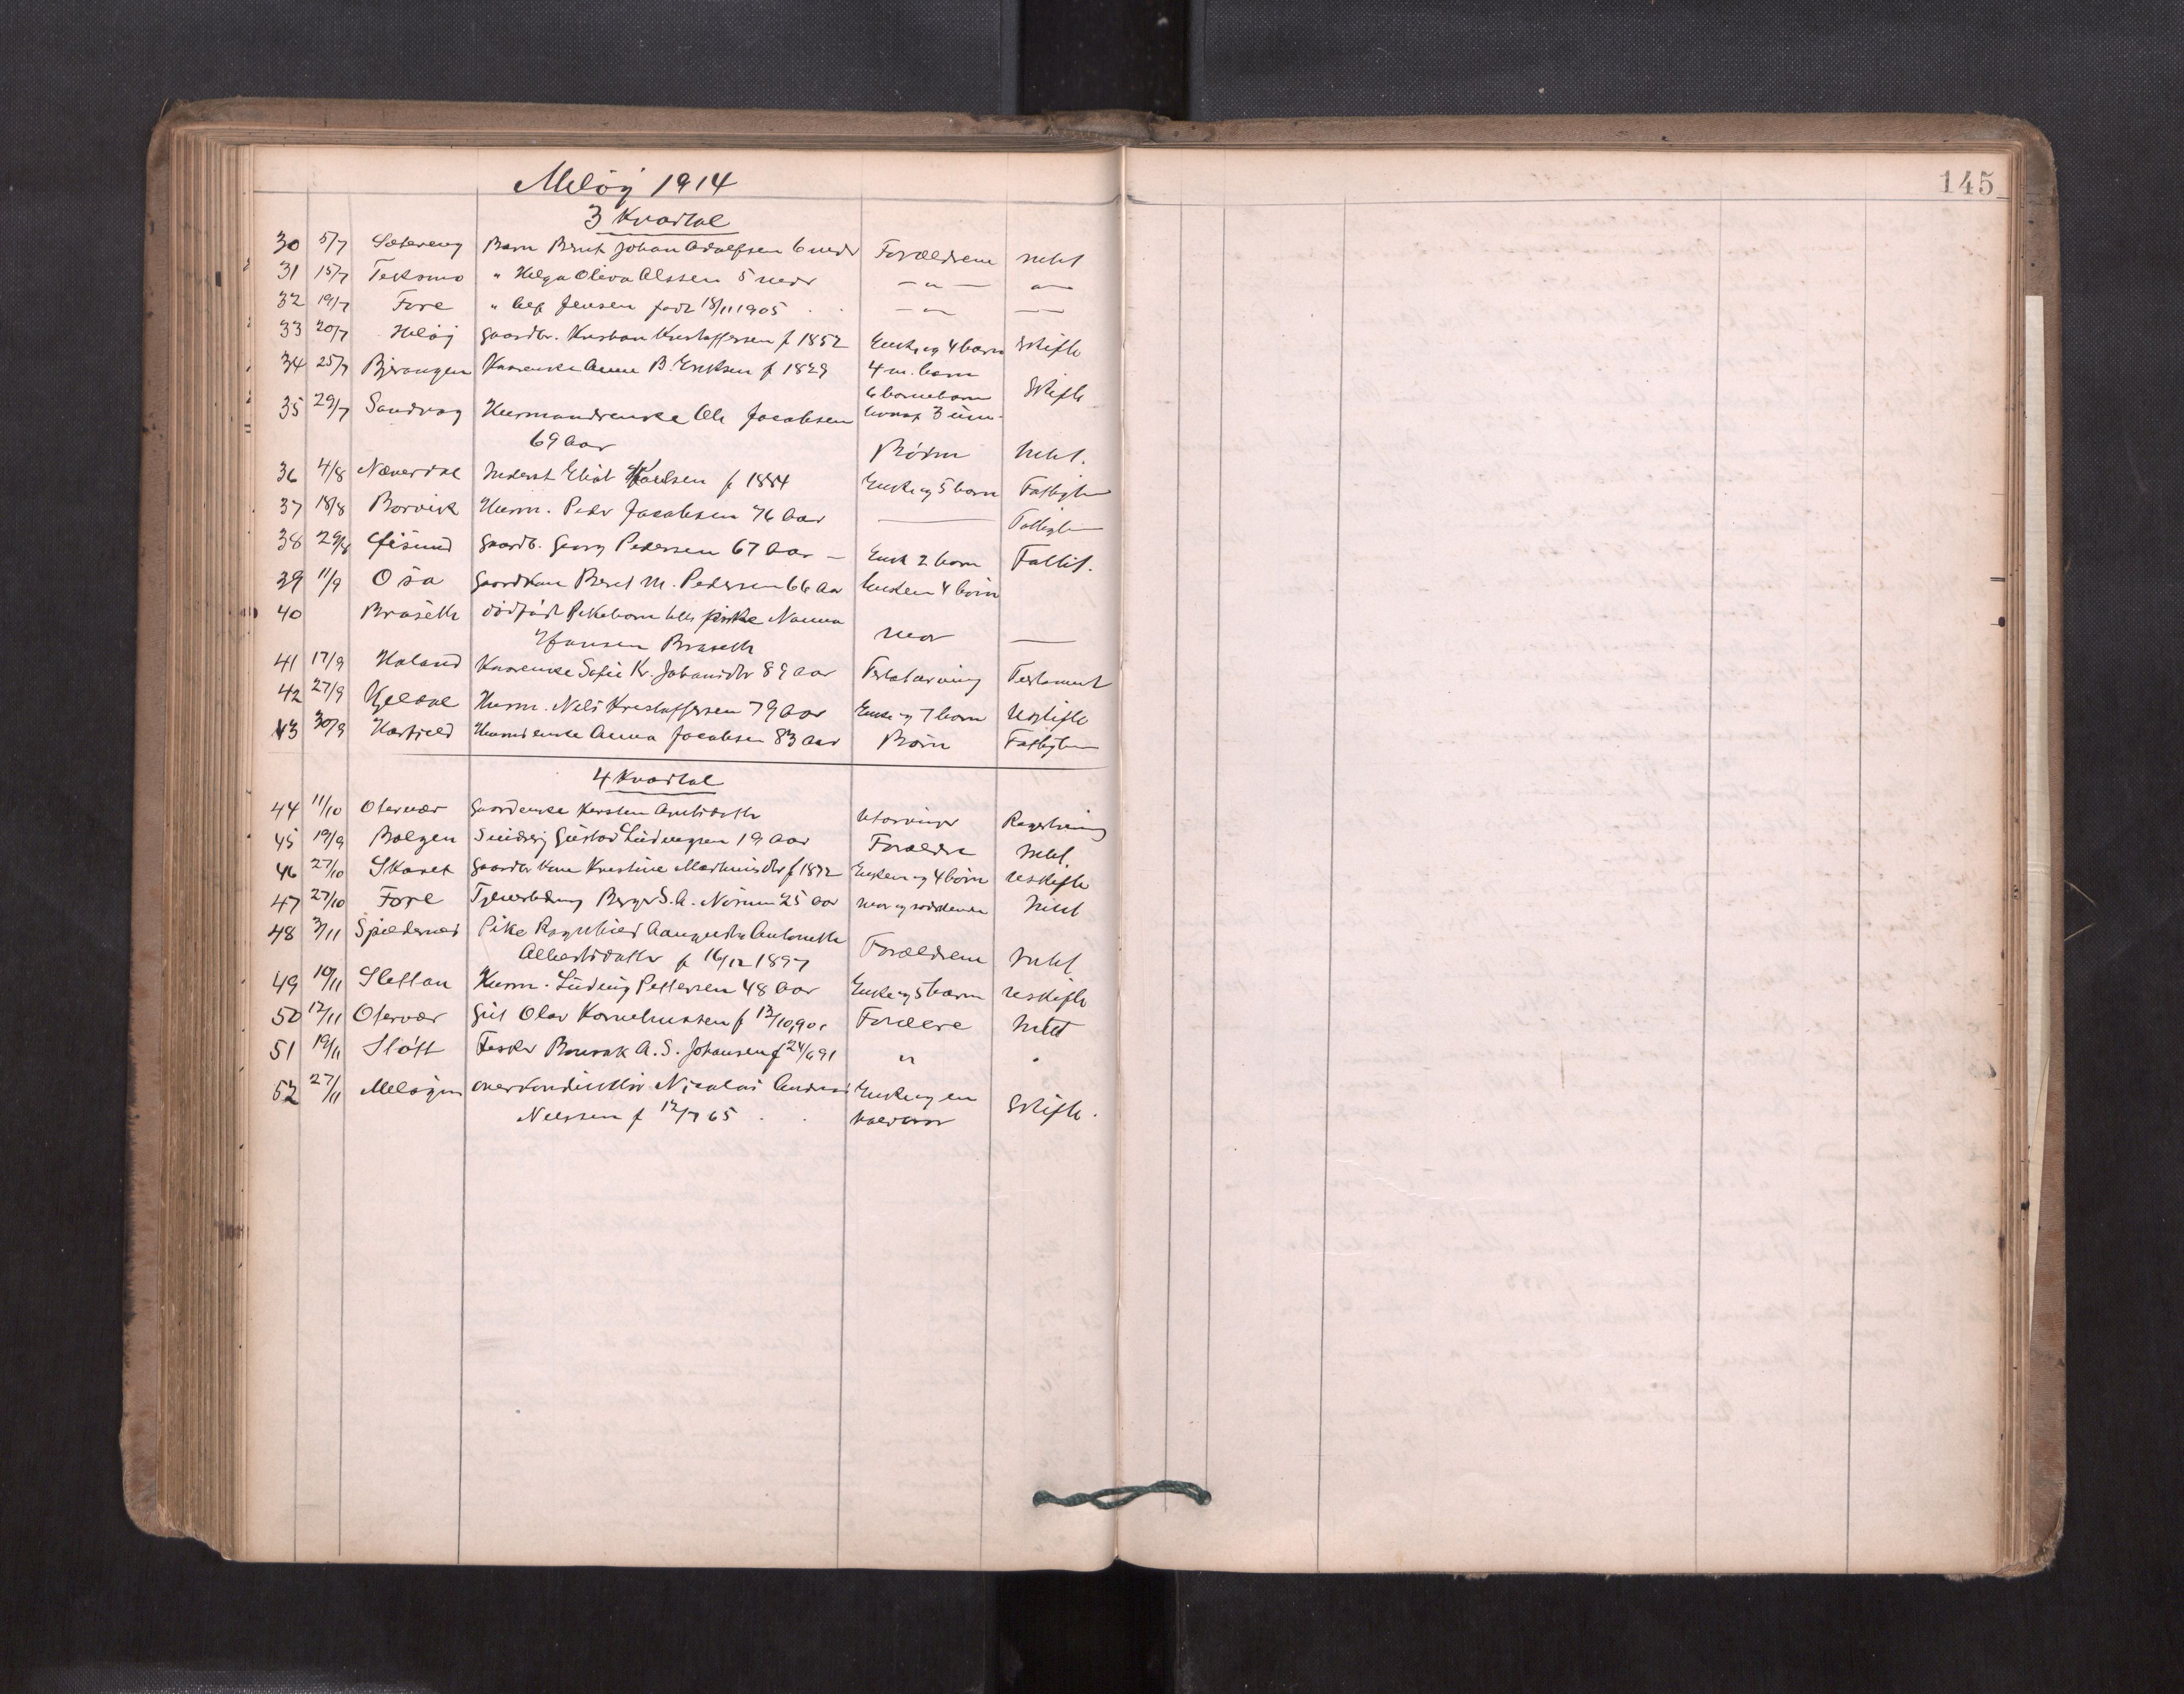 Meløy 1914
145
3 Kvartal
30 5/7 Sætereng Barn Bernt Johan Adolfsen 6 mdr Forældrene intet
31 15/7 Teksmo " Helga Oliva Olssen 5 mdr — " — — " —
32 19/7 Fore " Alf Jensen født 18/11 1905 — " — —
33 20/7 Meløy Gaardbr. Kristian Kristoffersen f 1852 Enke og 4 børn Skifte
34 25/7 Bjerangen Kaarenke Anne B. Eriksen f 1829 4 m. børn
6 børnebørn
hvoraf 3 um. Skifte
35 29/7 Sandvaag Husmandsenke Ole Jacobsen
69 Aar Børn Intet.
36 4/8 Næverdal Inderst Eliot Karlsen f 1884 Enke og 5 børn Fattigben
37 18/8 Borvik Husm. Peder Jacobsen 76 Aar — Fattigben
38 29/8 Øisund Gaardb. Georg Pedersen 67 Aar — Enke 2 børn Fallit.
39 11/9 Osa Gaardkone Beret M. Pedersen 66 Aar 4 børn
40 Braseth dødfødt Pikebarn Pike Nanna
Hansen Braseth mor —
41 17/9 Haland Kaarenke Sofie K. Johansdtr 89 Aar Testataarving Testament
42 27/9 Kjeldal Husm. Nils Kristoffersen 79 Aar Enke og 7 børn Uskifte
43 30/9 Husmdsenke Anna Jacobsen 83 Aar Børn Fattigben
4 Kvartal
44 11/10 Otervær Gaardenke Kirsten Utarvinger Registrering
45 19/9 Bolgen Gustav Ludvigsen 19 Aar Forældre Intet.
46 27/10 Skaret Gaardbr kone Kristine Martinusdtr f 1872 Enkem og 4 børn Uskifte
47 27/10 Fore Birger S. A. Norum 25 Aar mor og søskende Intet
48 3/11 Spildernes Pike Ragnhild Aaugusta Antonette
Albertsdatter f 16/12 1897 Forældrene Intet
49 10/11 Slettan Husm. Ludvig Pettersen 48 Aar Enke og 5 børn Uskifte
50 12/11 Otervær Gut Olav Korneliussen f Forældre Intet
51 19/11 Støtt Fisker A. S. Johansen f 24/6 91 " "
52 27/11 Meløyen Overkonduktør Nicolai Andreas
Nilssen f 12/7 65 Enke og en
Skifte.